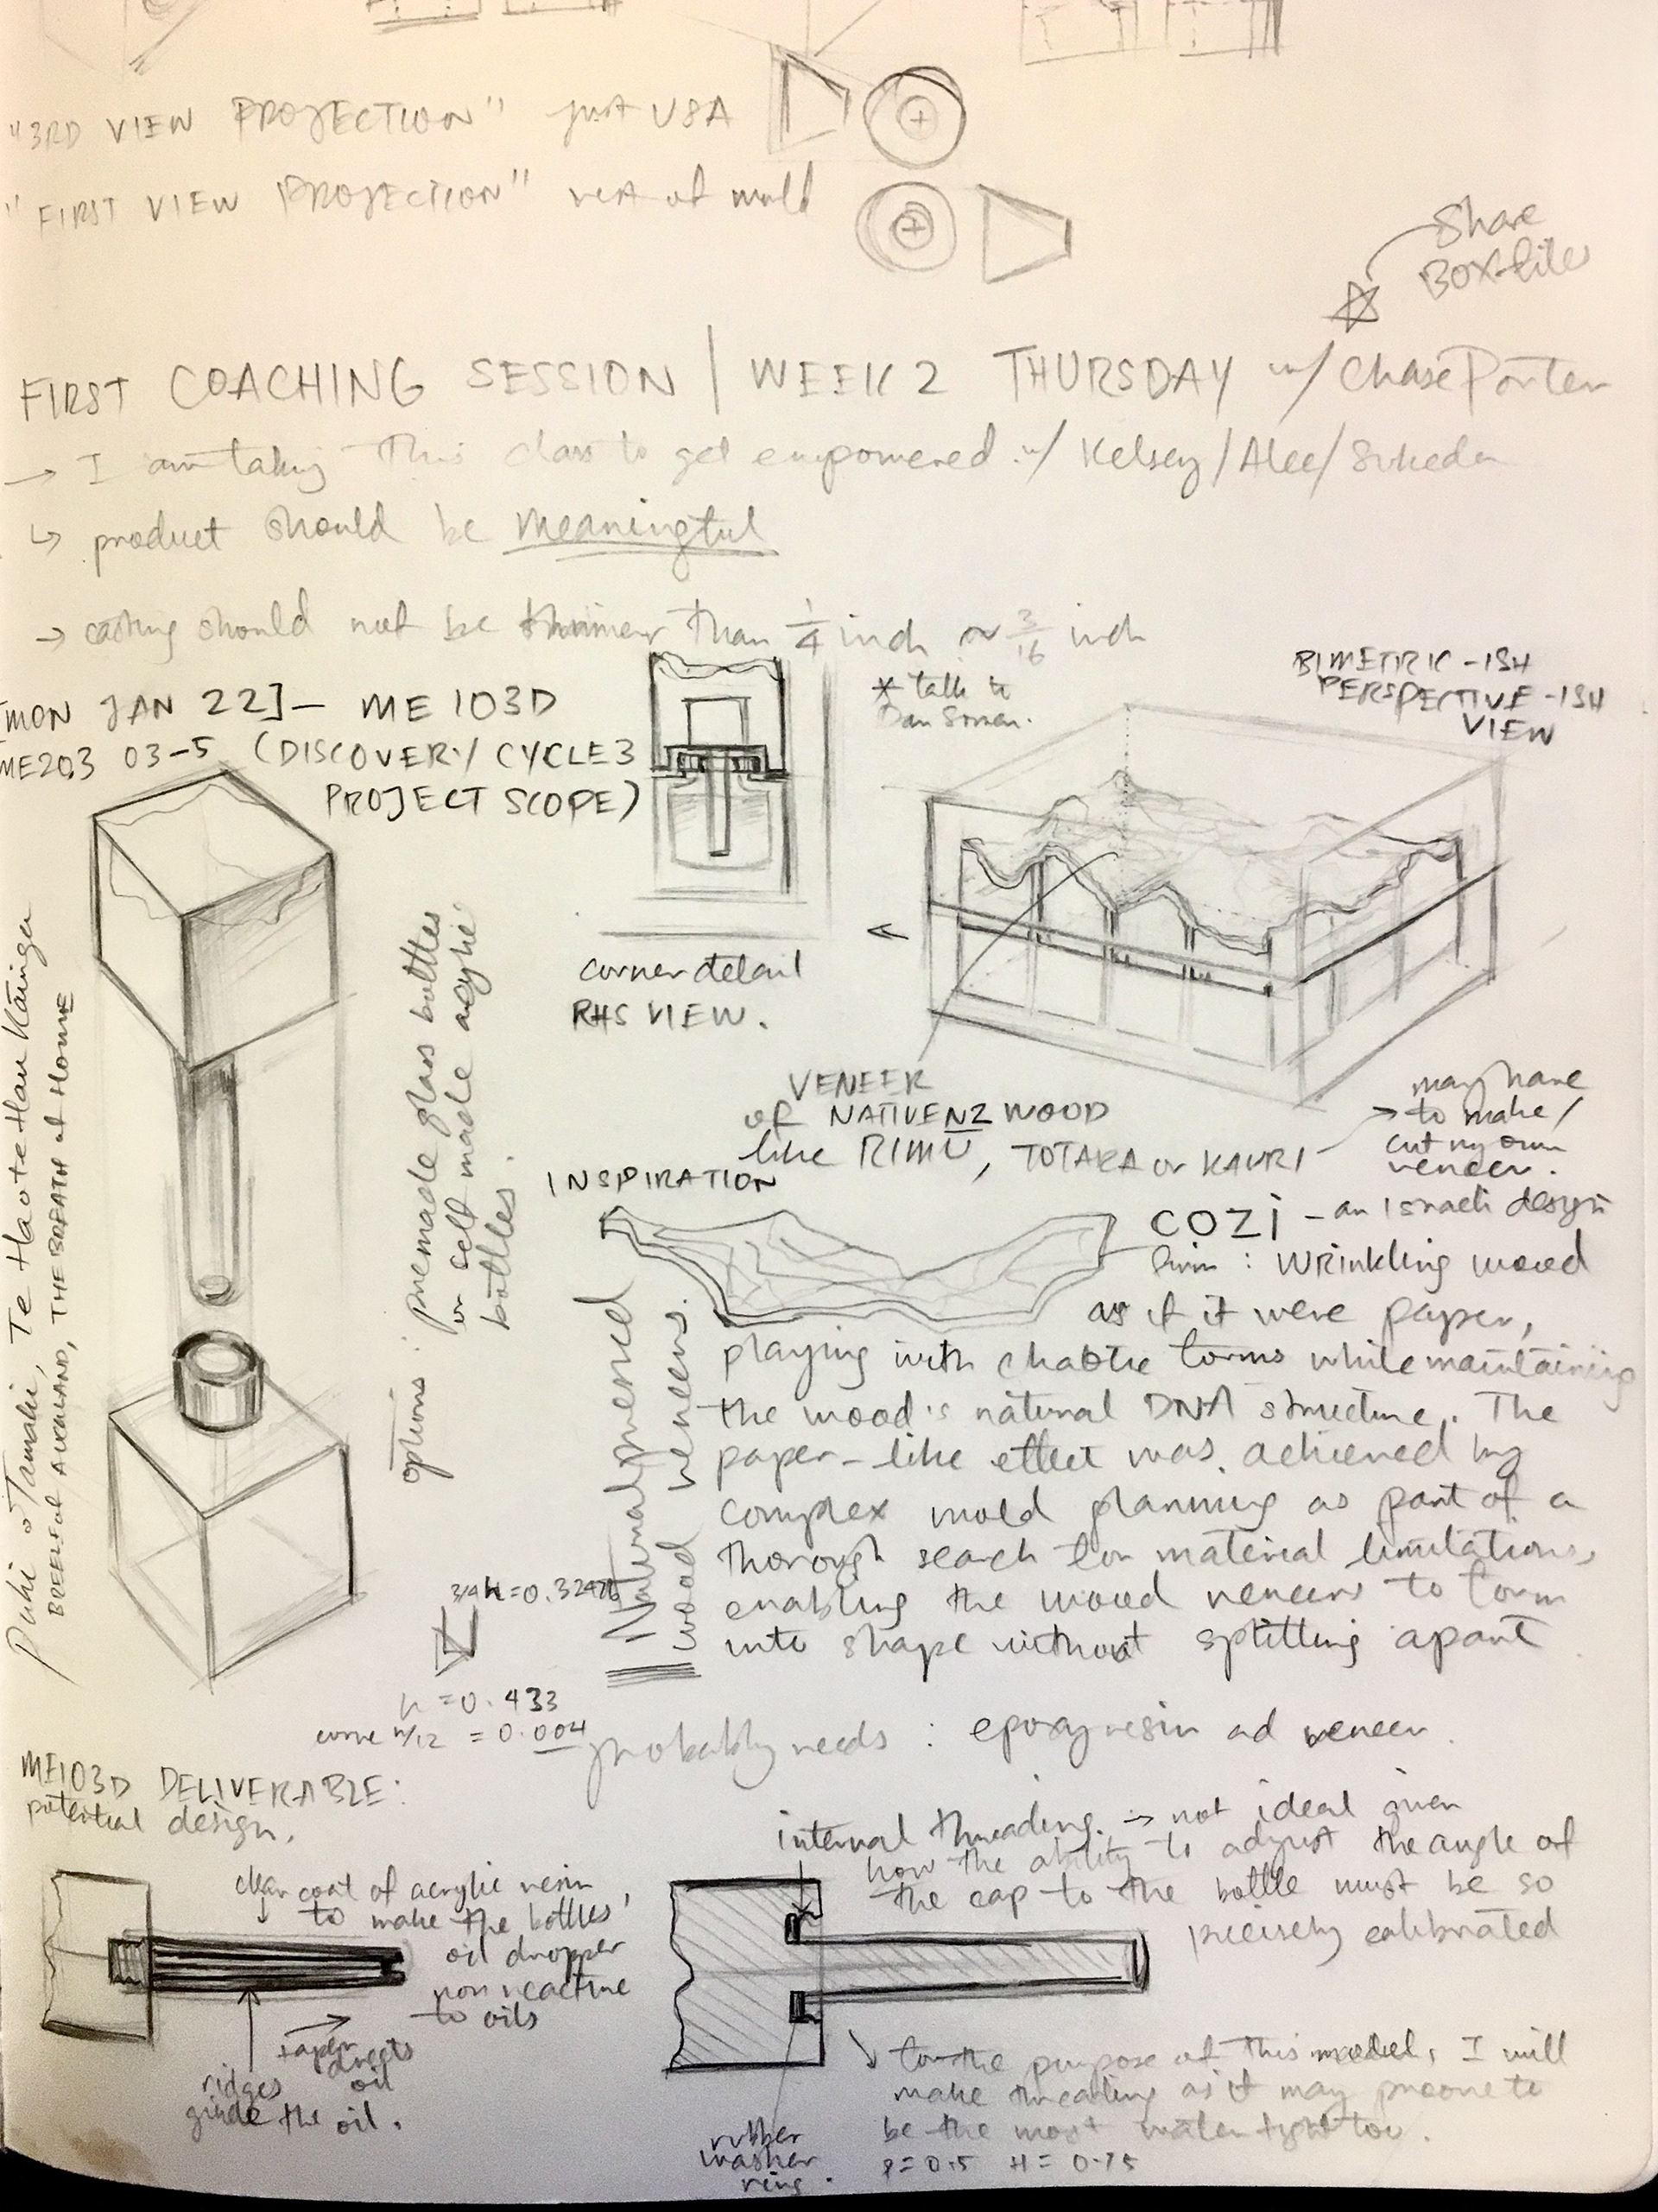 "3RD VIEW PROJECTION" just USA
"FIRST VIEW PROJECTION" rest of world
Share
Box file
FIRST COACHING SESSION | WEEK 2 THURSDAY w/ Chase Porter
→ I am taking this class to get empowered w/ Kelsey/Alec/
↳ product should be meaningful
→ casting should not be thinner than 1/4 inch or 3/16 inch
[MON JAN 22] - ME 103D
ME203 03-5 (DISCOVERY/CYCLE3
PROJECT SCOPE)
* talk to
Dan
BIMETRIC-ISH
PERSPECTIVE-ISH
VIEW
corner detail
RHS VIEW.
VENEER
of NATIVE NZ WOOD
like RIMU, TOTARA or KAURI
may have
→ to make/
cut my own
veneer.
options: premade glass bottles
or self made acrylic
bottles.
Puhi o Tamaki, Te Ha o te Hau Kāinga
BREEZE of AUCKLAND, THE BREATH of HOME
INSPIRATION
COZI - an Israeli design
firm: wrinkling wood
as if it were paper,
playing with chaotic forms while maintaining
the wood's natural DNA structure. The
paper-like effect was achieved by
complex mold planning as part of a
thorough search for material limitations,
enabling the wood veneers to form
into shape without splitting apart
Natural pressed
wood veneers.
3/4h=0.32476
h=0.433
h/12 = 0.004
probably needs: epoxy resin ad veneer.
ME103D DELIVERABLE:
potential design.
clear coat of acrylic resin
to make the bottles'
oil dropper
non reactive
to oils
→
taper directs
oil
ridges
guide the oil.
internal threading. → not ideal given
how the ability to adjust the angle of
the cap to the bottle must be so
precisely calibrated
↘ for the purpose of this model, I will
make threading as it may prove to
be the most water tight too.
P=0.5 H=0.75
rubber
washer
ring.